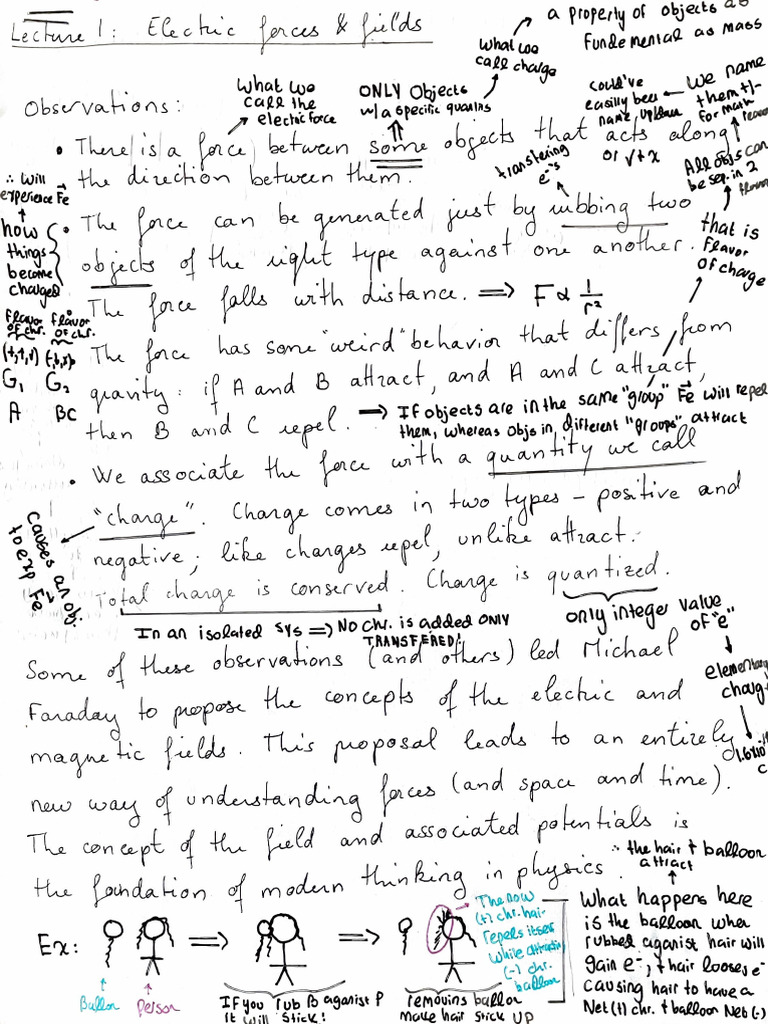 Lecture 1: Electric forces & fields
a property of objects as
fundemental as mass
What we
call charge
Observations:
What we
call the
electric force
ONLY Objects
w/a specific quanins
could've
easilly been
name, up/down
or √ + x
We name
them +/-
for math
reason
• There is a force between some objects that acts along
the direction between them.
∴ Will
experience Fe
transfering
e-s
All objs can
be sep. in 2
• The force can be generated just by rubbing two
objects of the right type against one another.
how
things
become
charged
that is
flavor
of charge
The force falls with distance. ⇒ F ∝ 1/r²
flavor
of chr.
flavor
of chr.
G1 G2
A BC
The force has some "weird" behavior that differs from
gravity: if A and B attract, and A and C attract,
then B and C repel.
→ If objects are in the same "group" Fe will repel
them, whereas objs in different "groups" attract
• We associate the force with a quantity we call
"charge". Charge comes in two types – positive and
negative; like charges repel, unlike attract.
Total charge is conserved. Charge is quantized.
causes an obj.
to exp Fe
In an isolated sys ⇒ NO chr. is added ONLY
TRANSFERED!
only integer value
of "e"
elementary
charge
1.6x10
C
Some of these observations (and others) led Michael
Faraday to propose the concepts of the electric and
magnetic fields. This proposal leads to an entirely
new way of understanding forces (and space and time).
The concept of the field and associated potentials is
the foundation of modern thinking in physics.
∴ the hair + balloon
attract
Ex: ⇒ ⇒
Ballon
Person
If you rub B aganist P
it will stick!
removins ballon
make hair stick UP
The now
(+) chr. hair
repels itself
while attracting
(-) chr.
balloon
What happens here
is the balloon when
rubbed aganist hair will
gain e-, + hair looses e-
causing hair to have a
Net (+) chr. + balloon Net (-)